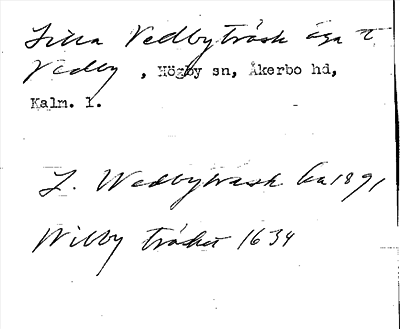 Lilla Vedbyträsk äga t.
Vedby , Högby sn, Åkerbo hd,
Kalm. l.
L. Wedbyträsk Ea 1891
Wilby träsket 1634